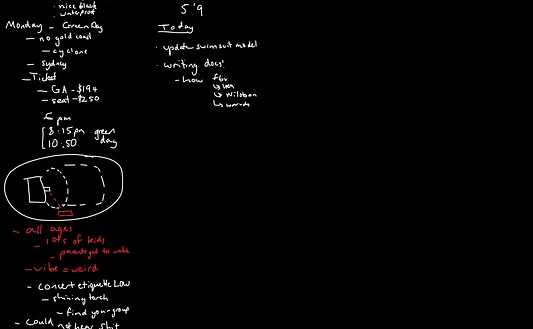 - nice black
- waterproof
Monday - Green Day
- no gold coast
- cyclone
- sydney
- Ticket
- GA - $194
- seat - $250
6 pm
8:15pm green
10:50 day
- all ages
- lots of kids
- parents get to
- vibe = weird
- concert etiquette Law
- shining torch
- find your group
- could not hear shit
5'9
Today
· update swimsuit model
· writing docs!
- how